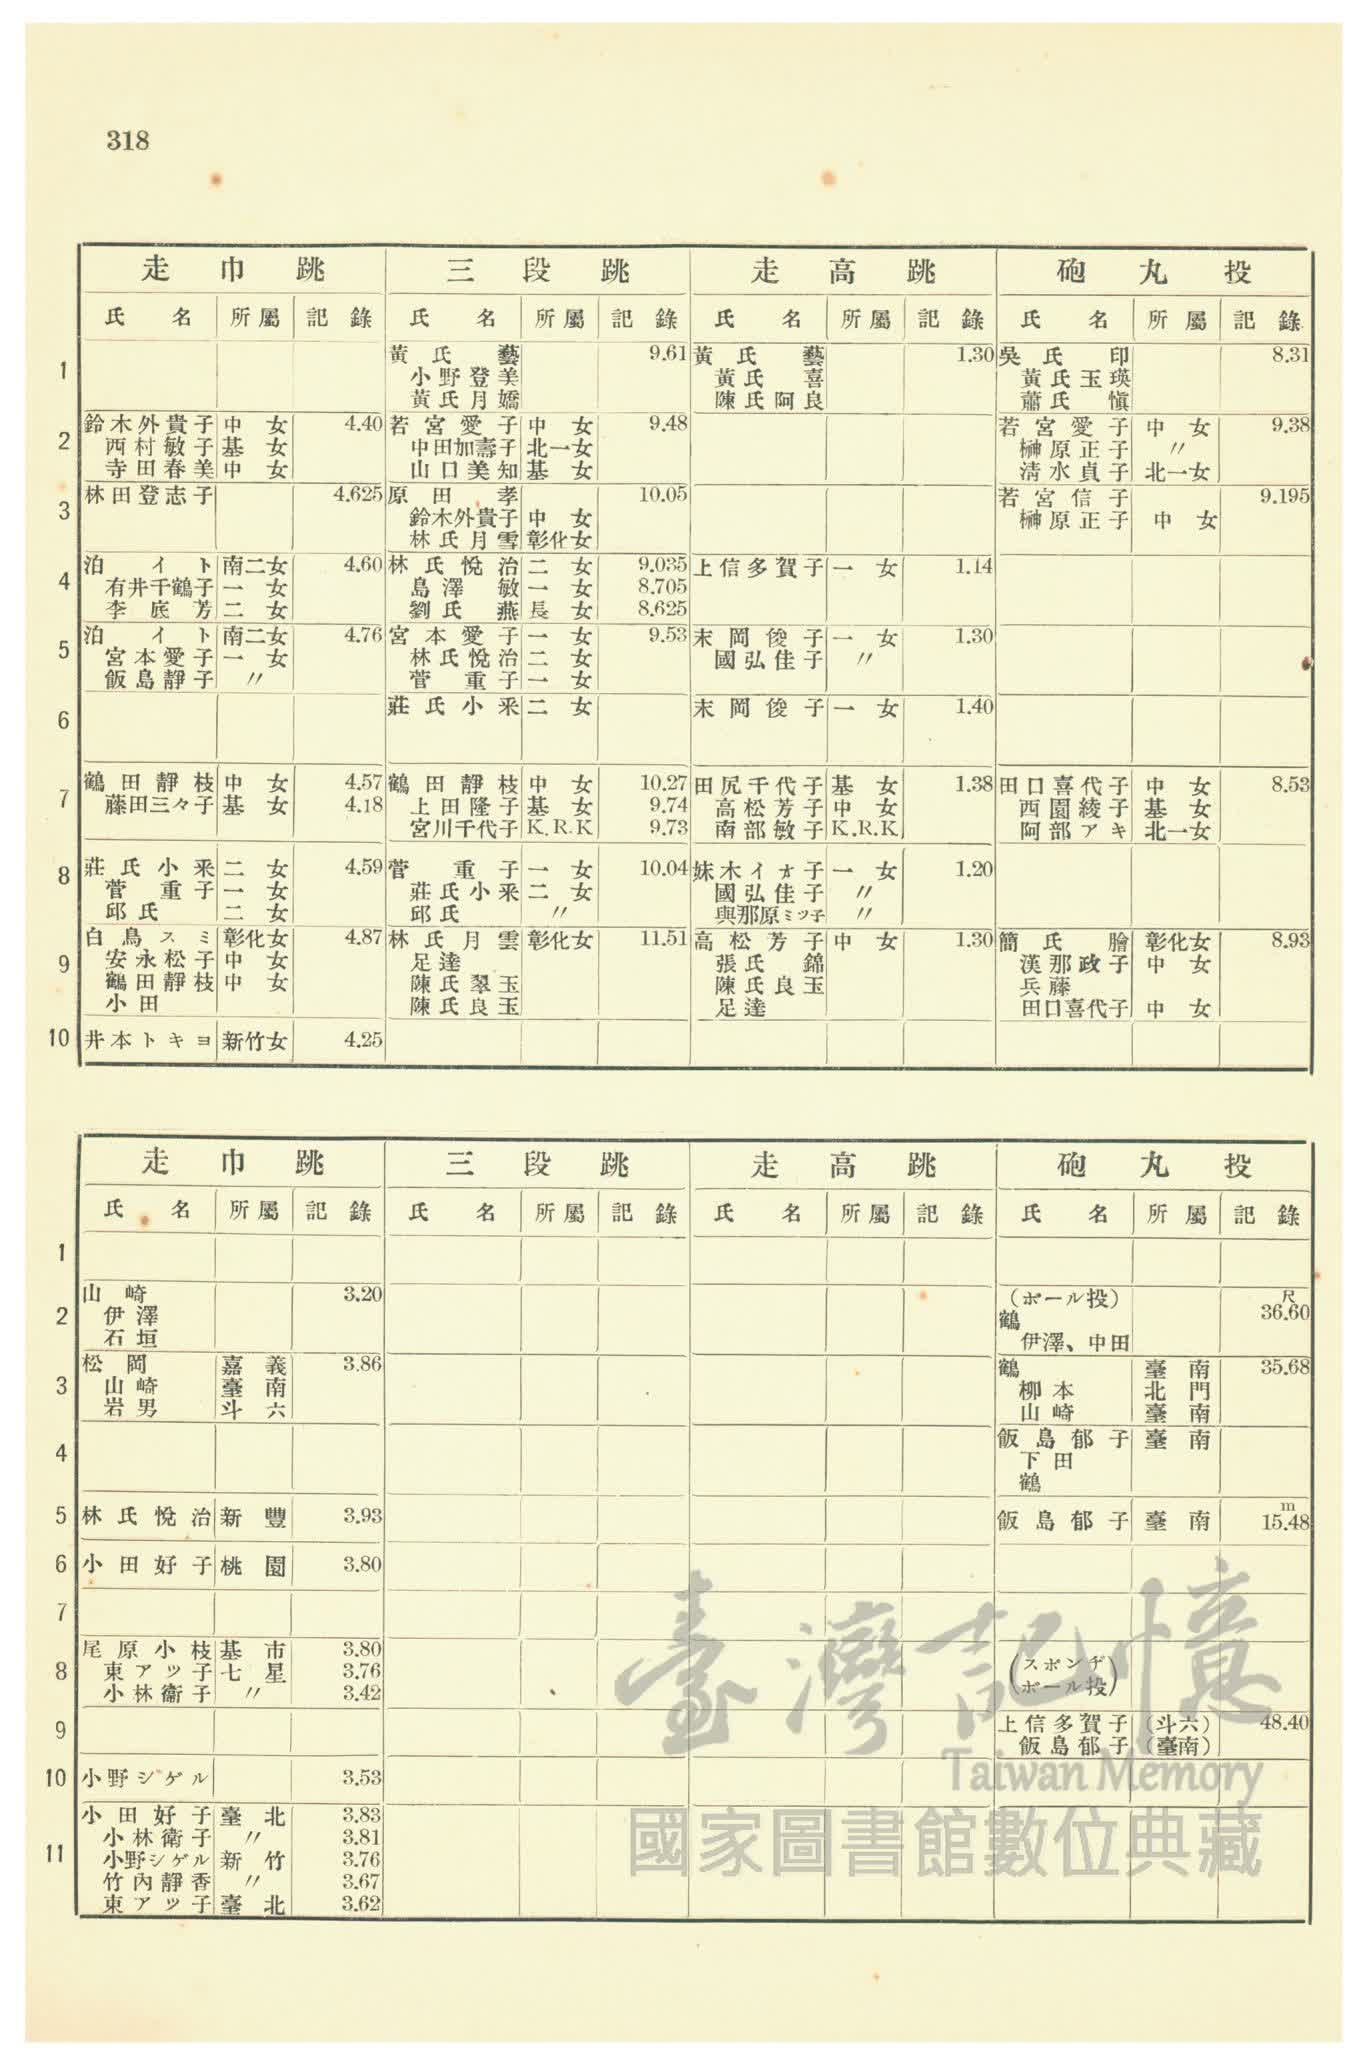 318
走巾跳 三段跳 走高跳 砲丸投
氏名 所屬 記錄 氏名 所屬 記錄 氏名 所屬 記錄 氏名 所屬 記錄
1 黃氏藝 9.61 黃氏藝 1.30 吳氏印 8.31
小野登美 黃氏喜 黃氏玉瑛
黃氏月嬌 陳氏阿良 蕭氏愼
2 鈴木外貴子 中女 4.40 若宮愛子 中女 9.48 若宮愛子 中女 9.38
西村敏子 基女 中田加壽子 北一女 榊原正子 〃
寺田春美 中女 山口美知 基女 清水貞子 北一女
3 林田登志子 4.625 原田孝 10.05 若宮信子 9.195
鈴木外貴子 中女 榊原正子 中女
林氏月雪 彰化女
4 泊イト 南二女 4.60 林氏悅治 二女 9.035 上信多賀子 一女 1.14
有井千鶴子 一女 島澤敏 一女 8.705
李底芳 二女 劉氏燕 長女 8.625
5 泊イト 南二女 4.76 宮本愛子 一女 9.53 末岡俊子 一女 1.30
宮本愛子 一女 林氏悅治 二女 國弘佳子 〃
飯島靜子 〃 菅重子 一女
6 莊氏小釆 二女 末岡俊子 一女 1.40
7 鶴田靜枝 中女 4.57 鶴田靜枝 中女 10.27 田尻千代子 基女 1.38 田口喜代子 中女 8.53
藤田三々子 基女 4.18 上田隆子 基女 9.74 高松芳子 中女 西園綾子 基女
宮川千代子 K.R.K 9.73 南部敏子 K.R.K 阿部アキ 北一女
8 莊氏小釆 二女 4.59 菅重子 一女 10.04 妹木イオ子 一女 1.20
菅重子 一女 莊氏小釆 二女 國弘佳子 〃
邱氏 二女 邱氏 〃 與那原ミツ子 〃
9 白鳥スミ 彰化女 4.87 林氏月雲 彰化女 11.51 高松芳子 中女 1.30 簡氏膾 彰化女 8.93
安永松子 中女 足達 張氏錦 漢那政子 中女
鶴田靜枝 中女 陳氏翠玉 陳氏良玉 兵藤
小田 陳氏良玉 足達 田口喜代子 中女
10 井本トキヨ 新竹女 4.25
走巾跳 三段跳 走高跳 砲丸投
氏名 所屬 記錄 氏名 所屬 記錄 氏名 所屬 記錄 氏名 所屬 記錄
1
2 山崎 3.20 (ボール投) 尺
伊澤 鶴 36.60
石垣 伊澤、中田
3 松岡 嘉義 3.86 鶴 臺南 35.68
山崎 臺南 柳本 北門
岩男 斗六 山崎 臺南
4 飯島郁子 臺南
下田
鶴
5 林氏悅治 新豐 3.93 飯島郁子 臺南 m 15.48
6 小田好子 桃園 3.80
7
8 尾原小枝 基市 3.80
東アツ子 七星 3.76 (スポンヂ
小林衞子 〃 3.42 ボール投)
9 上信多賀子 (斗六) 48.40
飯島郁子 (臺南)
10 小野シゲル 3.53
11 小田好子 臺北 3.83
小林衞子 〃 3.81
小野シゲル 新竹 3.76
竹內靜香 〃 3.67
東アツ子 臺北 3.62
臺灣記憶
Taiwan Memory
國家圖書館數位典藏